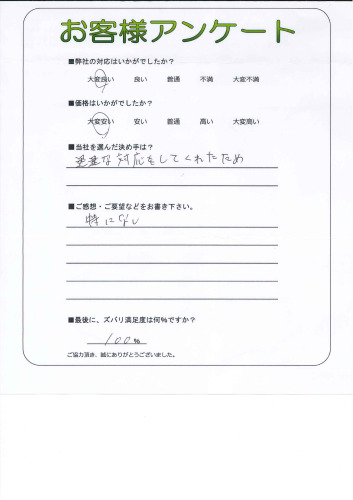 お客様アンケート
■弊社の対応はいかがでしたか？
大変良い 良い 普通 不満 大変不満
■価格はいかがでしたか？
大変安い 安い 普通 高い 大変高い
■当社を選んだ決め手は？
迅速な対応をしてくれたため
■ご感想・ご要望などをお書き下さい。
特になし
■最後に、ズバリ満足度は何%ですか？
100%
ご協力頂き、誠にありがとうございました。